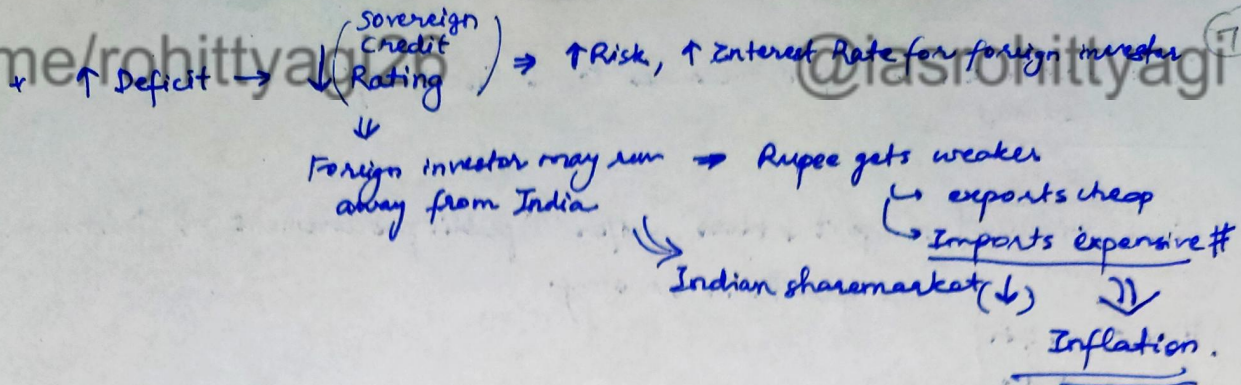 me/rohittyagi26 @iasrohittyagi
* ↑ Deficit → ↓ (Sovereign Credit Rating) ⇒ ↑ Risk, ↑ Interest Rate for foreign investor
⇓
Foreign investor may run away from India ⇒ Rupee gets weaker
↳ exports cheap
↳ Imports expensive #
⇘ Indian sharemarket (↓)
⇓
Inflation.